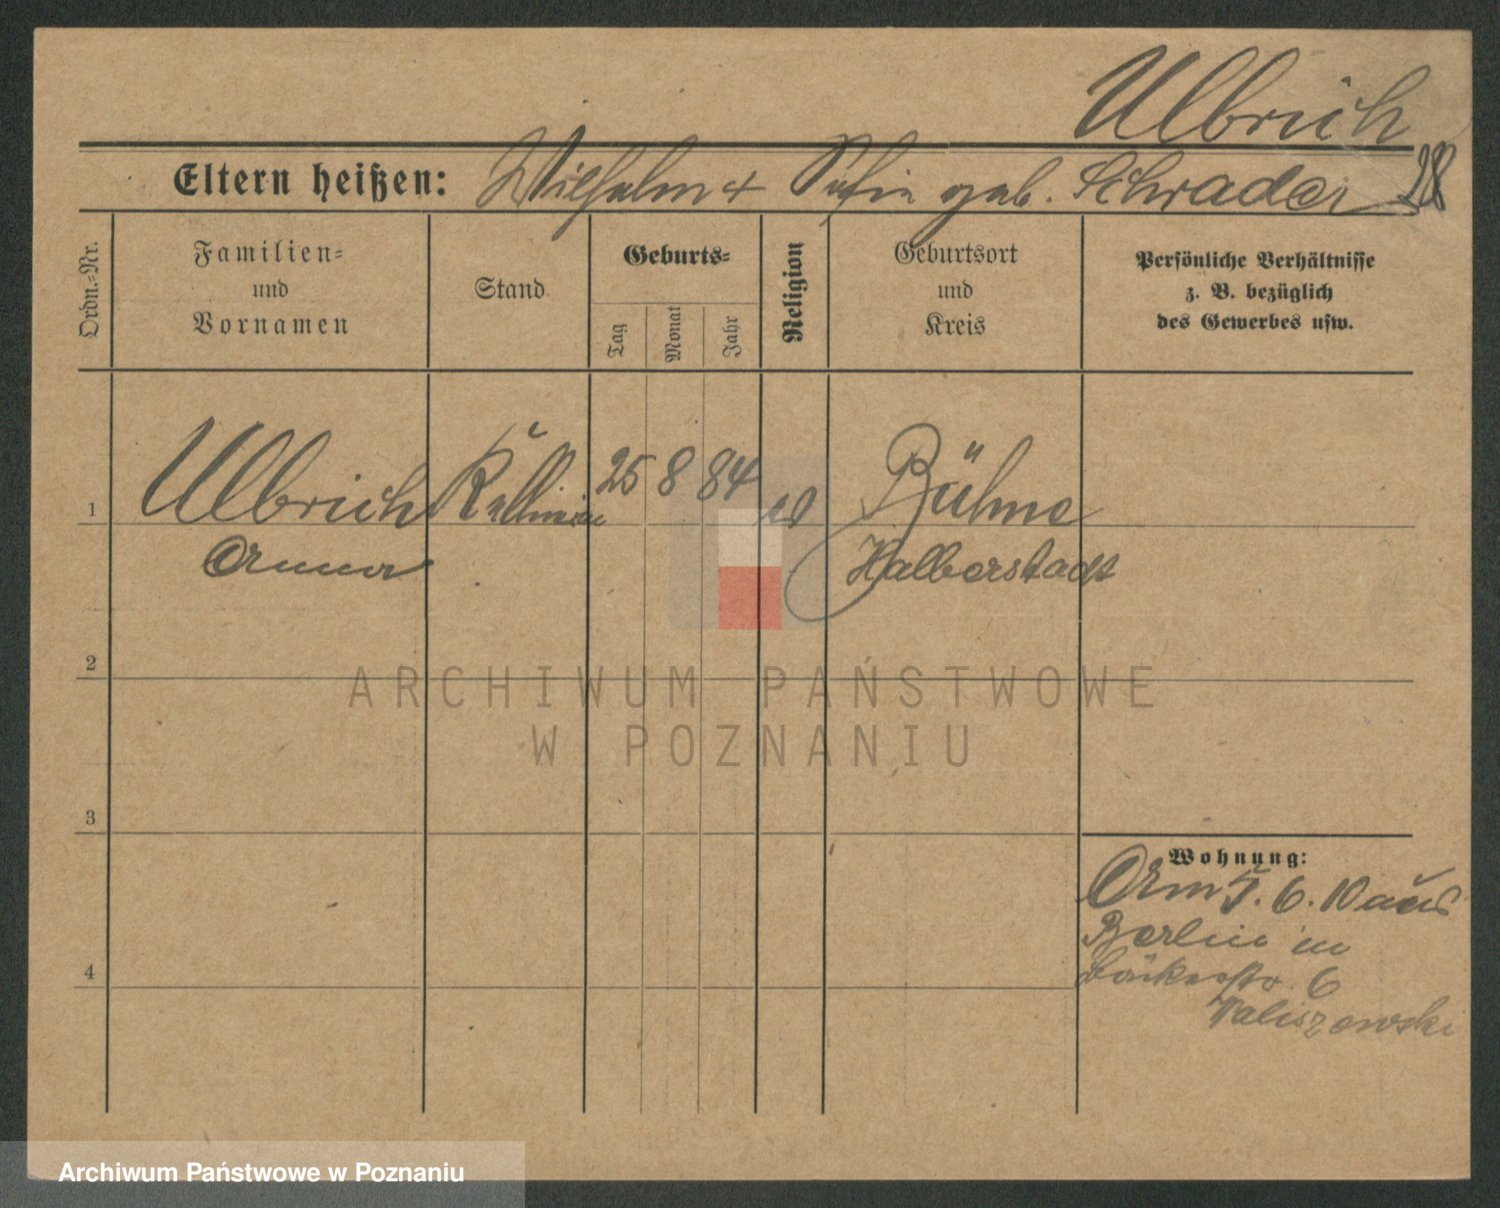 Ulbrich
Eltern heißen: Wilhelm + Sofie geb. Schrader 28
Ordn.-Nr.
Familien-
und
Vornamen
Stand
Geburts-
Tag
Monat
Jahr
Religion
Geburtsort
und
Kreis
Persönliche Verhältnisse
z. B. bezüglich
des Gewerbes usw.
1 Ulbrich Kellnerin 25 8 84 Bühne
Anna Halberstadt
2
3
4
Wohnung:
Am 5. 6. 10 aus
Berlin in
Bäckerstr 6
Waliszewski
ARCHIWUM PAŃSTWOWE
W POZNANIU
Archiwum Państwowe w Poznaniu